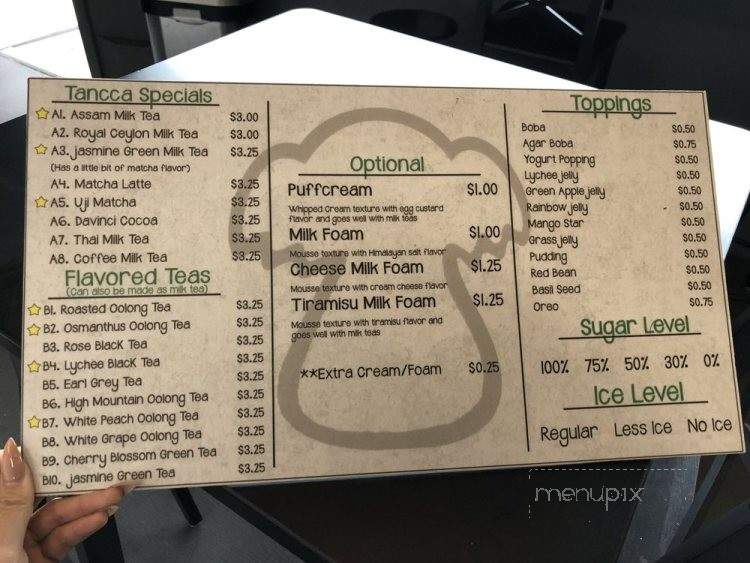 Tancca Specials
A1. Assam Milk Tea $3.00
A2. Royal Ceylon Milk Tea $3.00
A3. jasmine Green Milk Tea $3.25
(Has a little bit of matcha flavor)
A4. Matcha Latte $3.25
A5. Uji Matcha $3.25
A6. Davinci Cocoa $3.25
A7. Thai Milk Tea $3.25
A8. Coffee Milk Tea $3.25
Flavored Teas
(Can also be made as milk tea)
B1. Roasted Oolong Tea $3.25
B2. Osmanthus Oolong Tea $3.25
B3. Rose Black Tea $3.25
B4. Lychee Black Tea $3.25
B5. Earl Grey Tea $3.25
B6. High Mountain Oolong Tea $3.25
B7. White Peach Oolong Tea $3.25
B8. White Grape Oolong Tea $3.25
B9. Cherry Blossom Green Tea $3.25
B10. jasmine Green Tea $3.25
Optional
Puffcream $1.00
Whipped Cream texture with egg custard
flavor and goes well with milk teas
Milk Foam $1.00
Mousse texture with Himalayan salt flavor
Cheese Milk Foam $1.25
Mousse texture with cream cheese flavor
Tiramisu Milk Foam $1.25
Mousse texture with tiramisu flavor and
goes well with milk teas
**Extra Cream/Foam $0.25
Toppings
Boba $0.50
Agar Boba $0.75
Yogurt Popping $0.50
Lychee jelly $0.50
Green Apple jelly $0.50
Rainbow jelly $0.50
Mango Star $0.50
Grass jelly $0.50
Pudding $0.50
Red Bean $0.50
Basil Seed $0.50
Oreo $0.75
Sugar Level
100% 75% 50% 30% 0%
Ice Level
Regular Less Ice No Ice
menupix